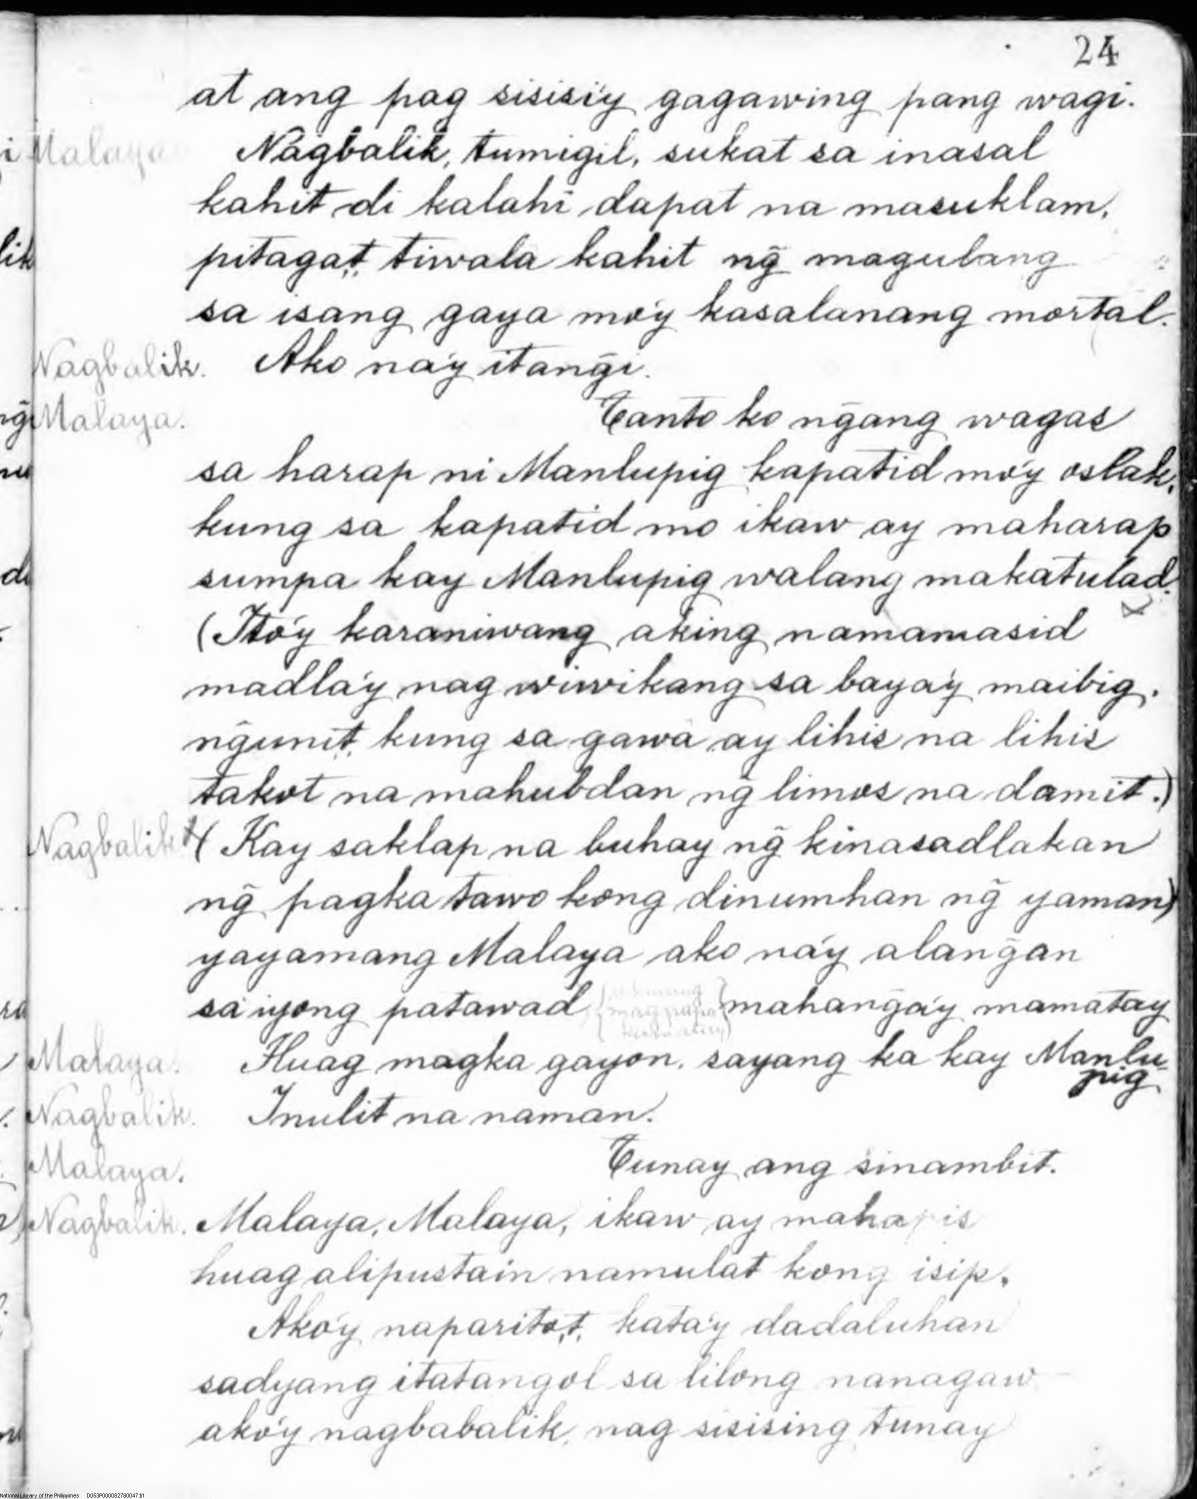 24
at ang pag sisisi'y gagawing pang wagi.
Malaya Nagbalik, tumigil, sukat sa inasal
kahit di kalahi dapat na masuklam,
pitagat, tiwala kahit ng̃ magulang
sa isang gaya mo'y kasalanang mortal.
Nagbalik. Ako na'y itang̃i.
Malaya. Tanto ko ng̃ang wagas
sa harap ni Manlupig kapatid mo'y oslak,
kung sa kapatid mo ikaw ay maharap
sumpa kay Manlupig walang makatulad.
(Ito'y karaniwang aking namamasid
madla'y nag wiwikang sa baya'y maibig.
ng̃unit, kung sa gawa ay lihis na lihis
takot na mahubdan ng̃ limos na damit.)
Nagbalik (Kay saklap na buhay ng̃ kinasadlakan
ng̃ pagka tawo kong dinumhan ng̃ yaman)
yayamang Malaya ako na'y alang̃an
sa iyong patawad mahang̃a'y mamatay
Malaya. Huag magka gayon. sayang ka kay Manlu-
pig
Nagbalik. Inulit na naman.
Malaya. Tunay ang sinambit.
Nagbalik. Malaya, Malaya, ikaw ay mahapis
huag alipustain namulat kong isip.
Ako'y naparitot, kata'y dadaluhan
sadyang itatangol sa lilong nanagaw
ako'y nagbabalik, nag sisising tunay
National Library of the Philippines